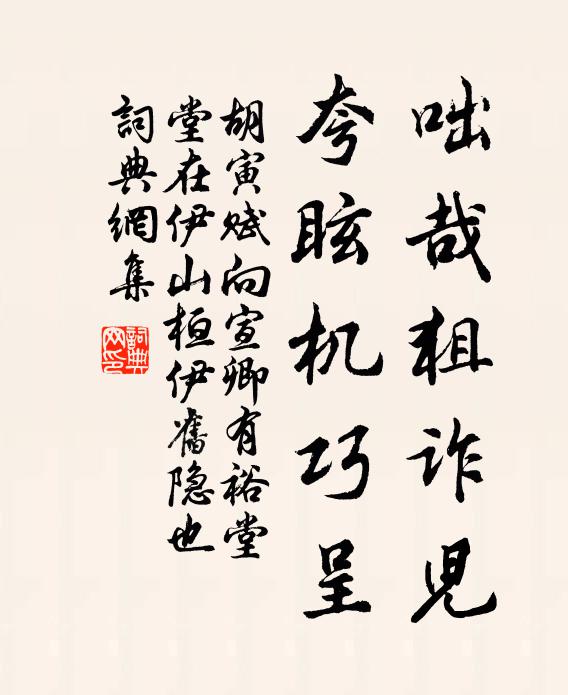 咄哉狙诈児
夸眩机巧呈
胡寅赋向宣卿有裕堂
堂在伊山桓伊舊隐也
詞典網集
詞典网印